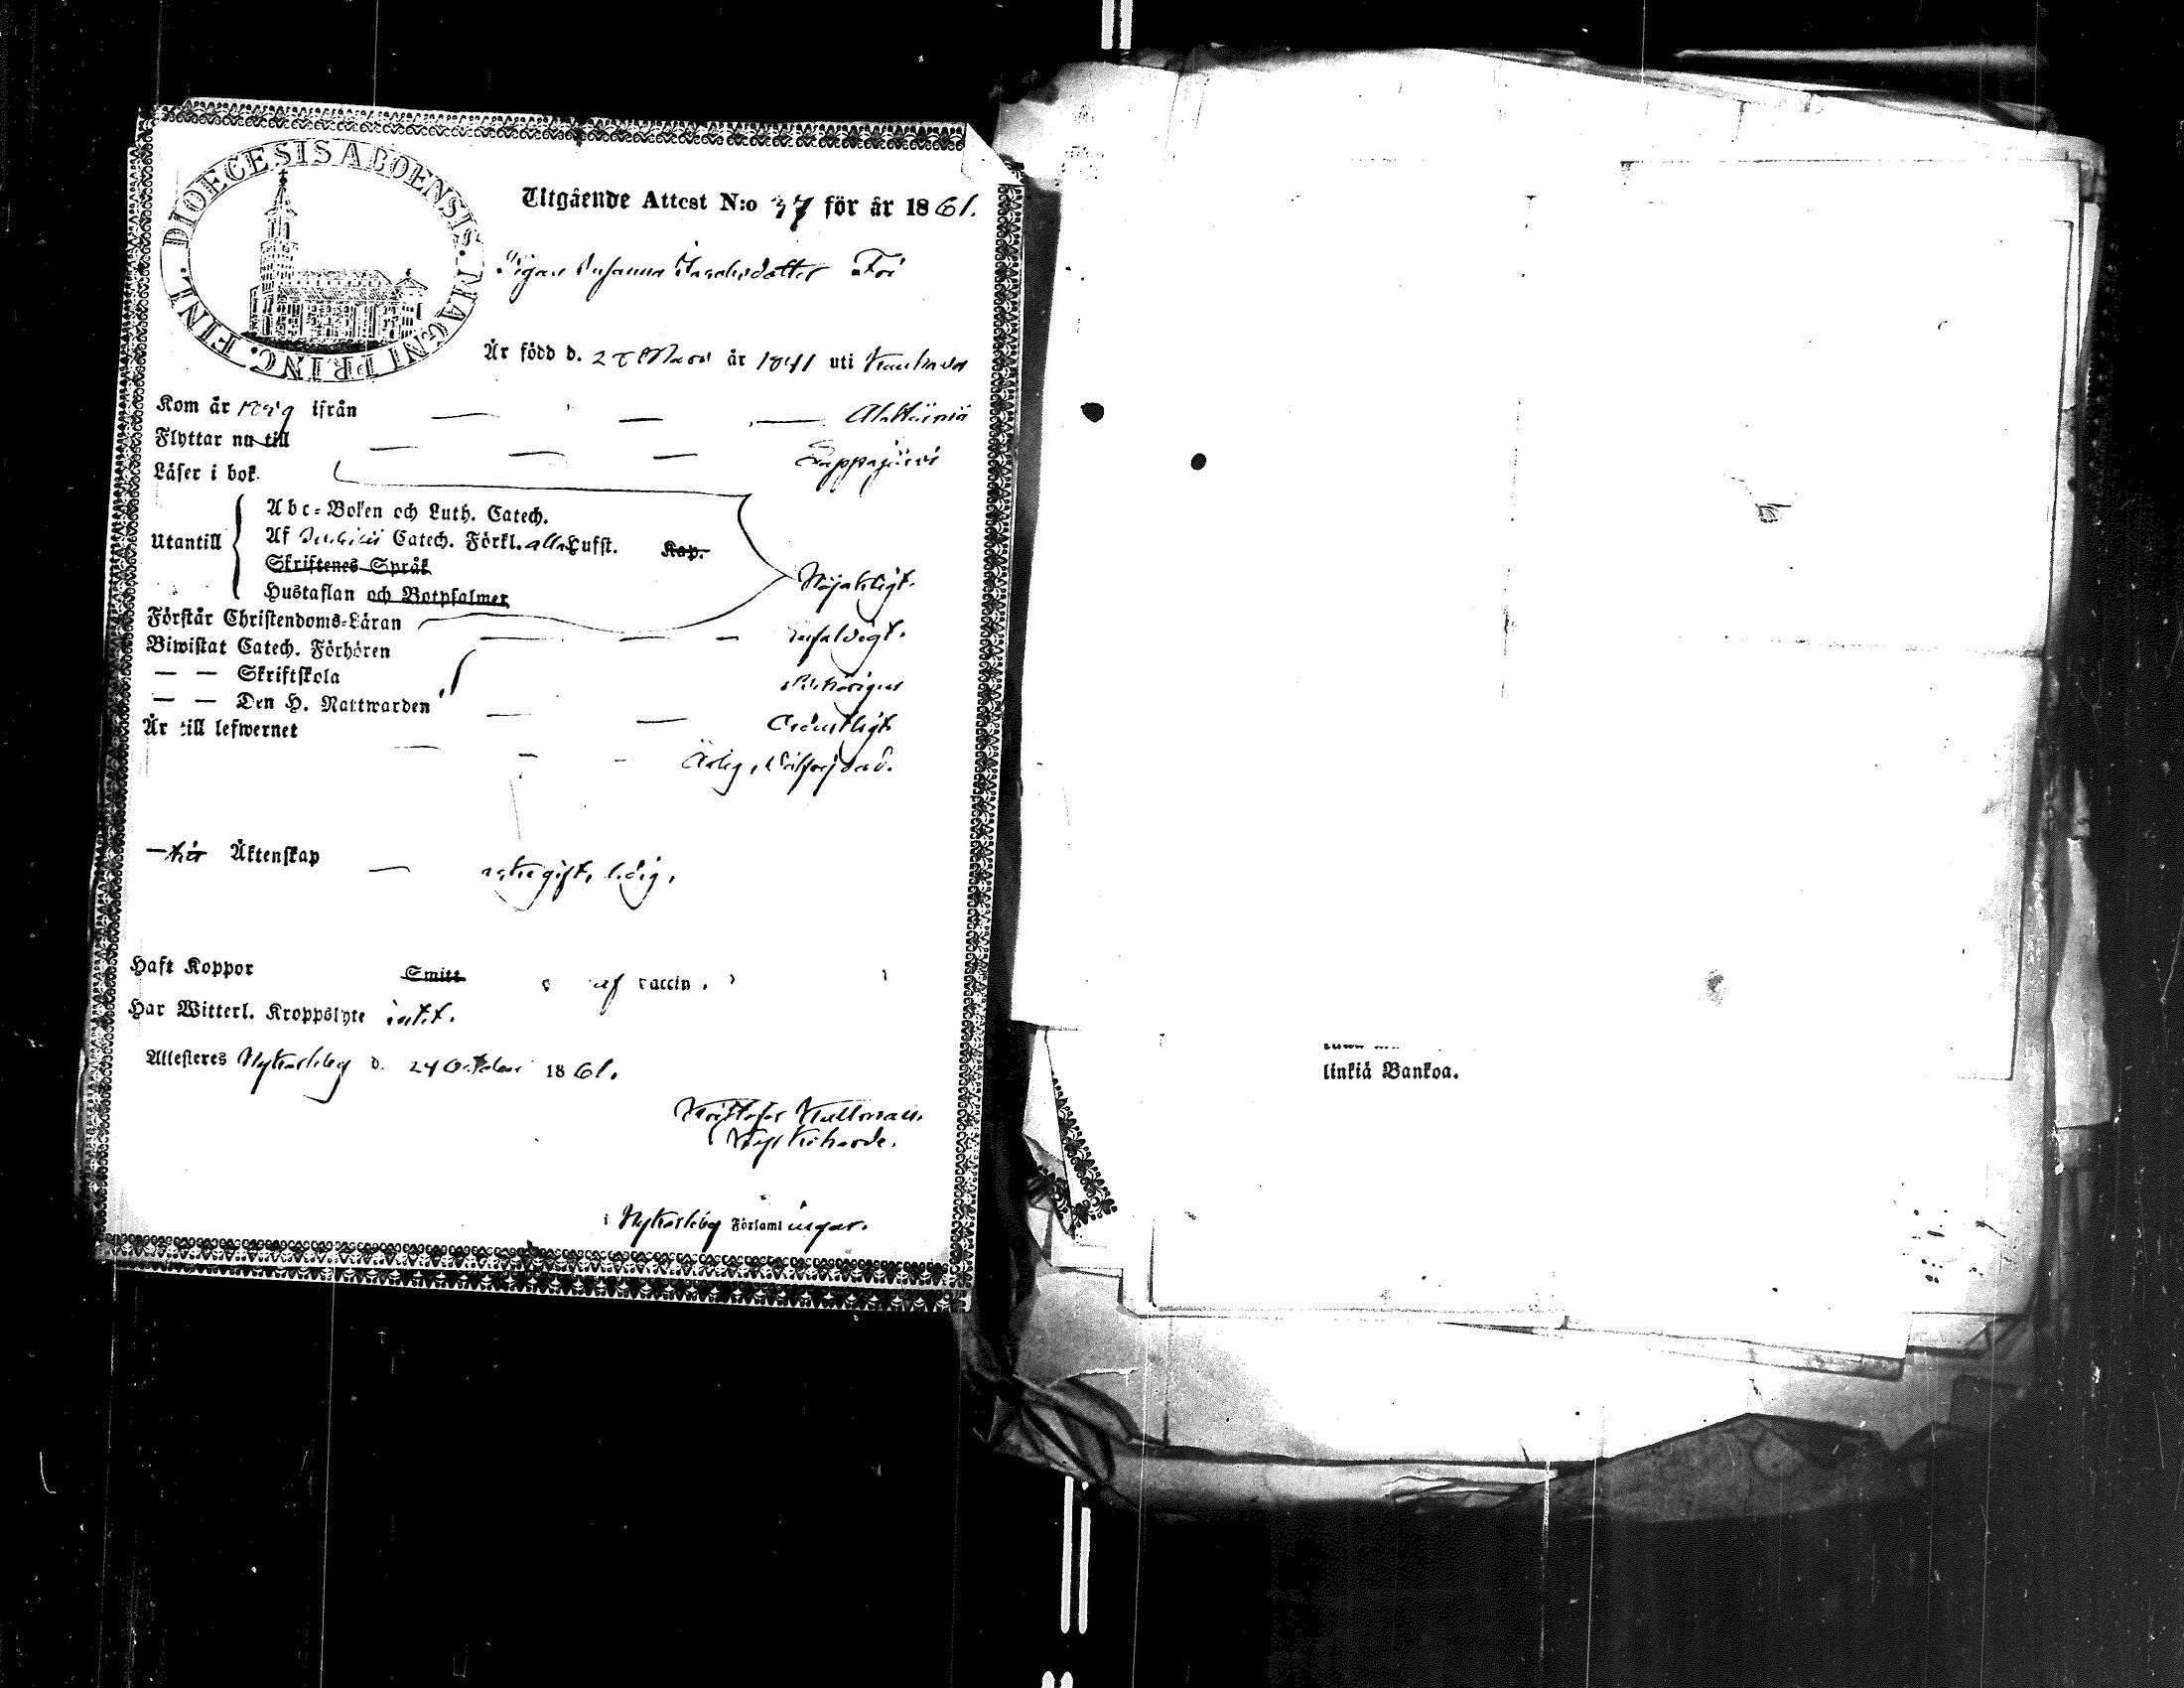 DIOECESIS ABOENSIS. MAGNI PRINC. FINL.
Utgående Attest N:o 37 för år 1861.
Pigan Susanna
Är född d. Mars år 1841 uti
Kom år ifrån Alahärmä
Flyttar nu till Lappajärvi
Läser i bok
Utantill
Abc-Boken och Luth. Catech.
Af Catech. Förkl. alla Hufst. Kap.
Skriftenes Språk
Hustaflan och Botpsalmer
Nöjaktigt.
Förstår Christendoms-Läran Enfaldigt.
Biwistat Catech. Förhören
— — Skriftskola
— — Den H. Nattwarden Ordentligt
Är till lefwernet
Ärlig, Välfrejdad.
Äktenskap ledig,
Haft Koppor Smitt af vaccin.
Har Witterl. Kroppslyte intet.
Attesteras Nykarleby d. 24 October 1861.
i Nykarleby Församlingar.
linkiä Bankoa.